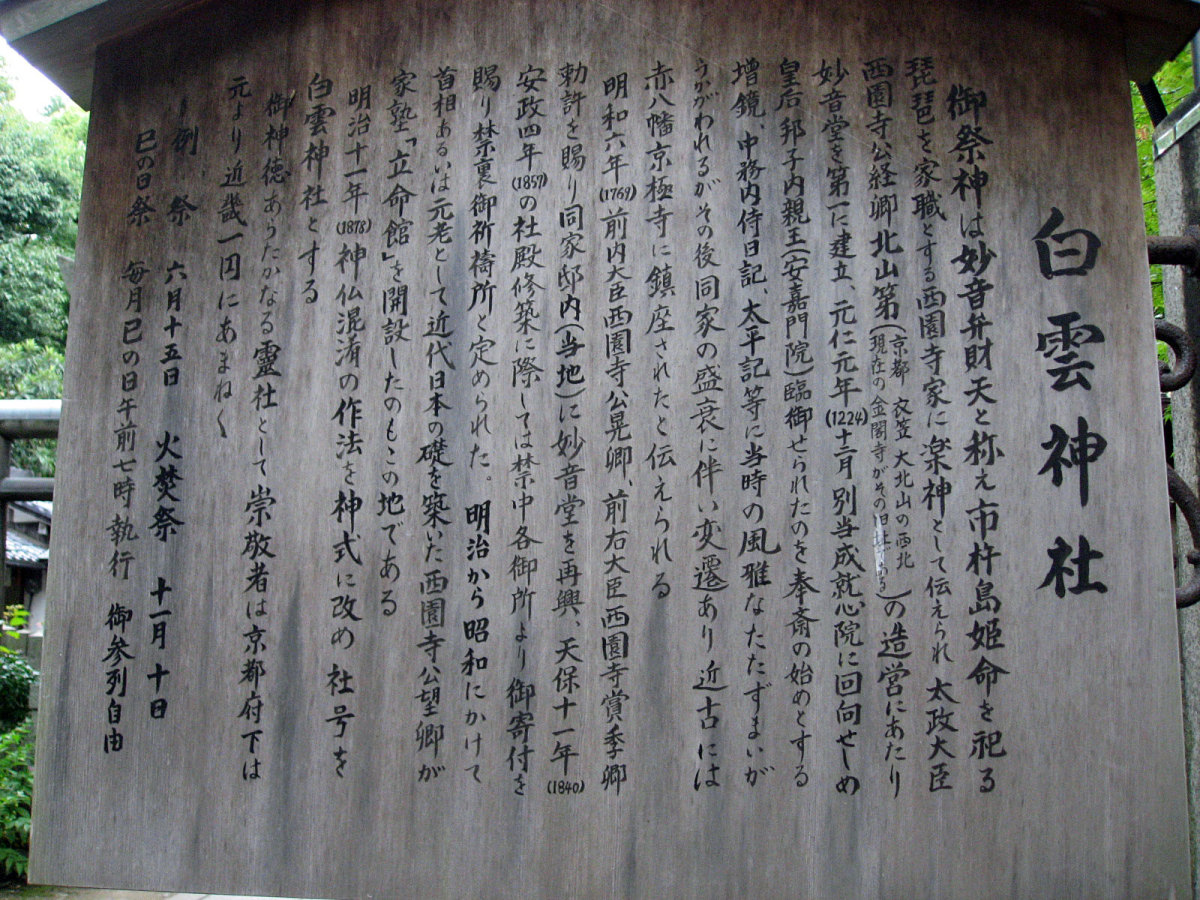 白雲神社
御祭神は妙音弁財天と称え市杵島姫命を祀る
琵琶を家職とする西園寺家に楽神として伝えられ太政大臣
西園寺公経卿北山第(京都 衣笠 大北山の西北
現在の金閣寺がその旧址である)の造営にあたり
妙音堂を第一に建立、元仁元年(1224)十二月別当成就心院に回向せしめ
皇后邦子内親王(安嘉門院)臨御せられたのを奉斎の始めとする
増鏡、中務内侍日記、太平記等に当時の風雅なたたずまいが
うかがわれるがその後同家の盛衰に伴い変遷あり近古には
赤八幡京極寺に鎮座されたと伝えられる
明和六年(1769)前内大臣西園寺公晃卿、前右大臣西園寺賞季卿
勅許を賜り同家邸内(当地)に妙音堂を再興、天保十一年(1840)
安政四年(1857)の社殿修築に際しては禁中各御所より御寄付を
賜り禁裏御祈祷所と定められた。明治から昭和にかけて
首相あるいは元老として近代日本の礎を築いた西園寺公望卿が
家塾「立命館」を開設したのもこの地である
明治十一年(1878)神仏混淆の作法を神式に改め社号を
白雲神社とする
御神徳あらたかなる霊社として崇敬者は京都府下は
元より近畿一円にあまねく
例祭 六月十五日 火焚祭 十一月十日
巳の日祭 毎月巳の日午前七時執行 御参列自由